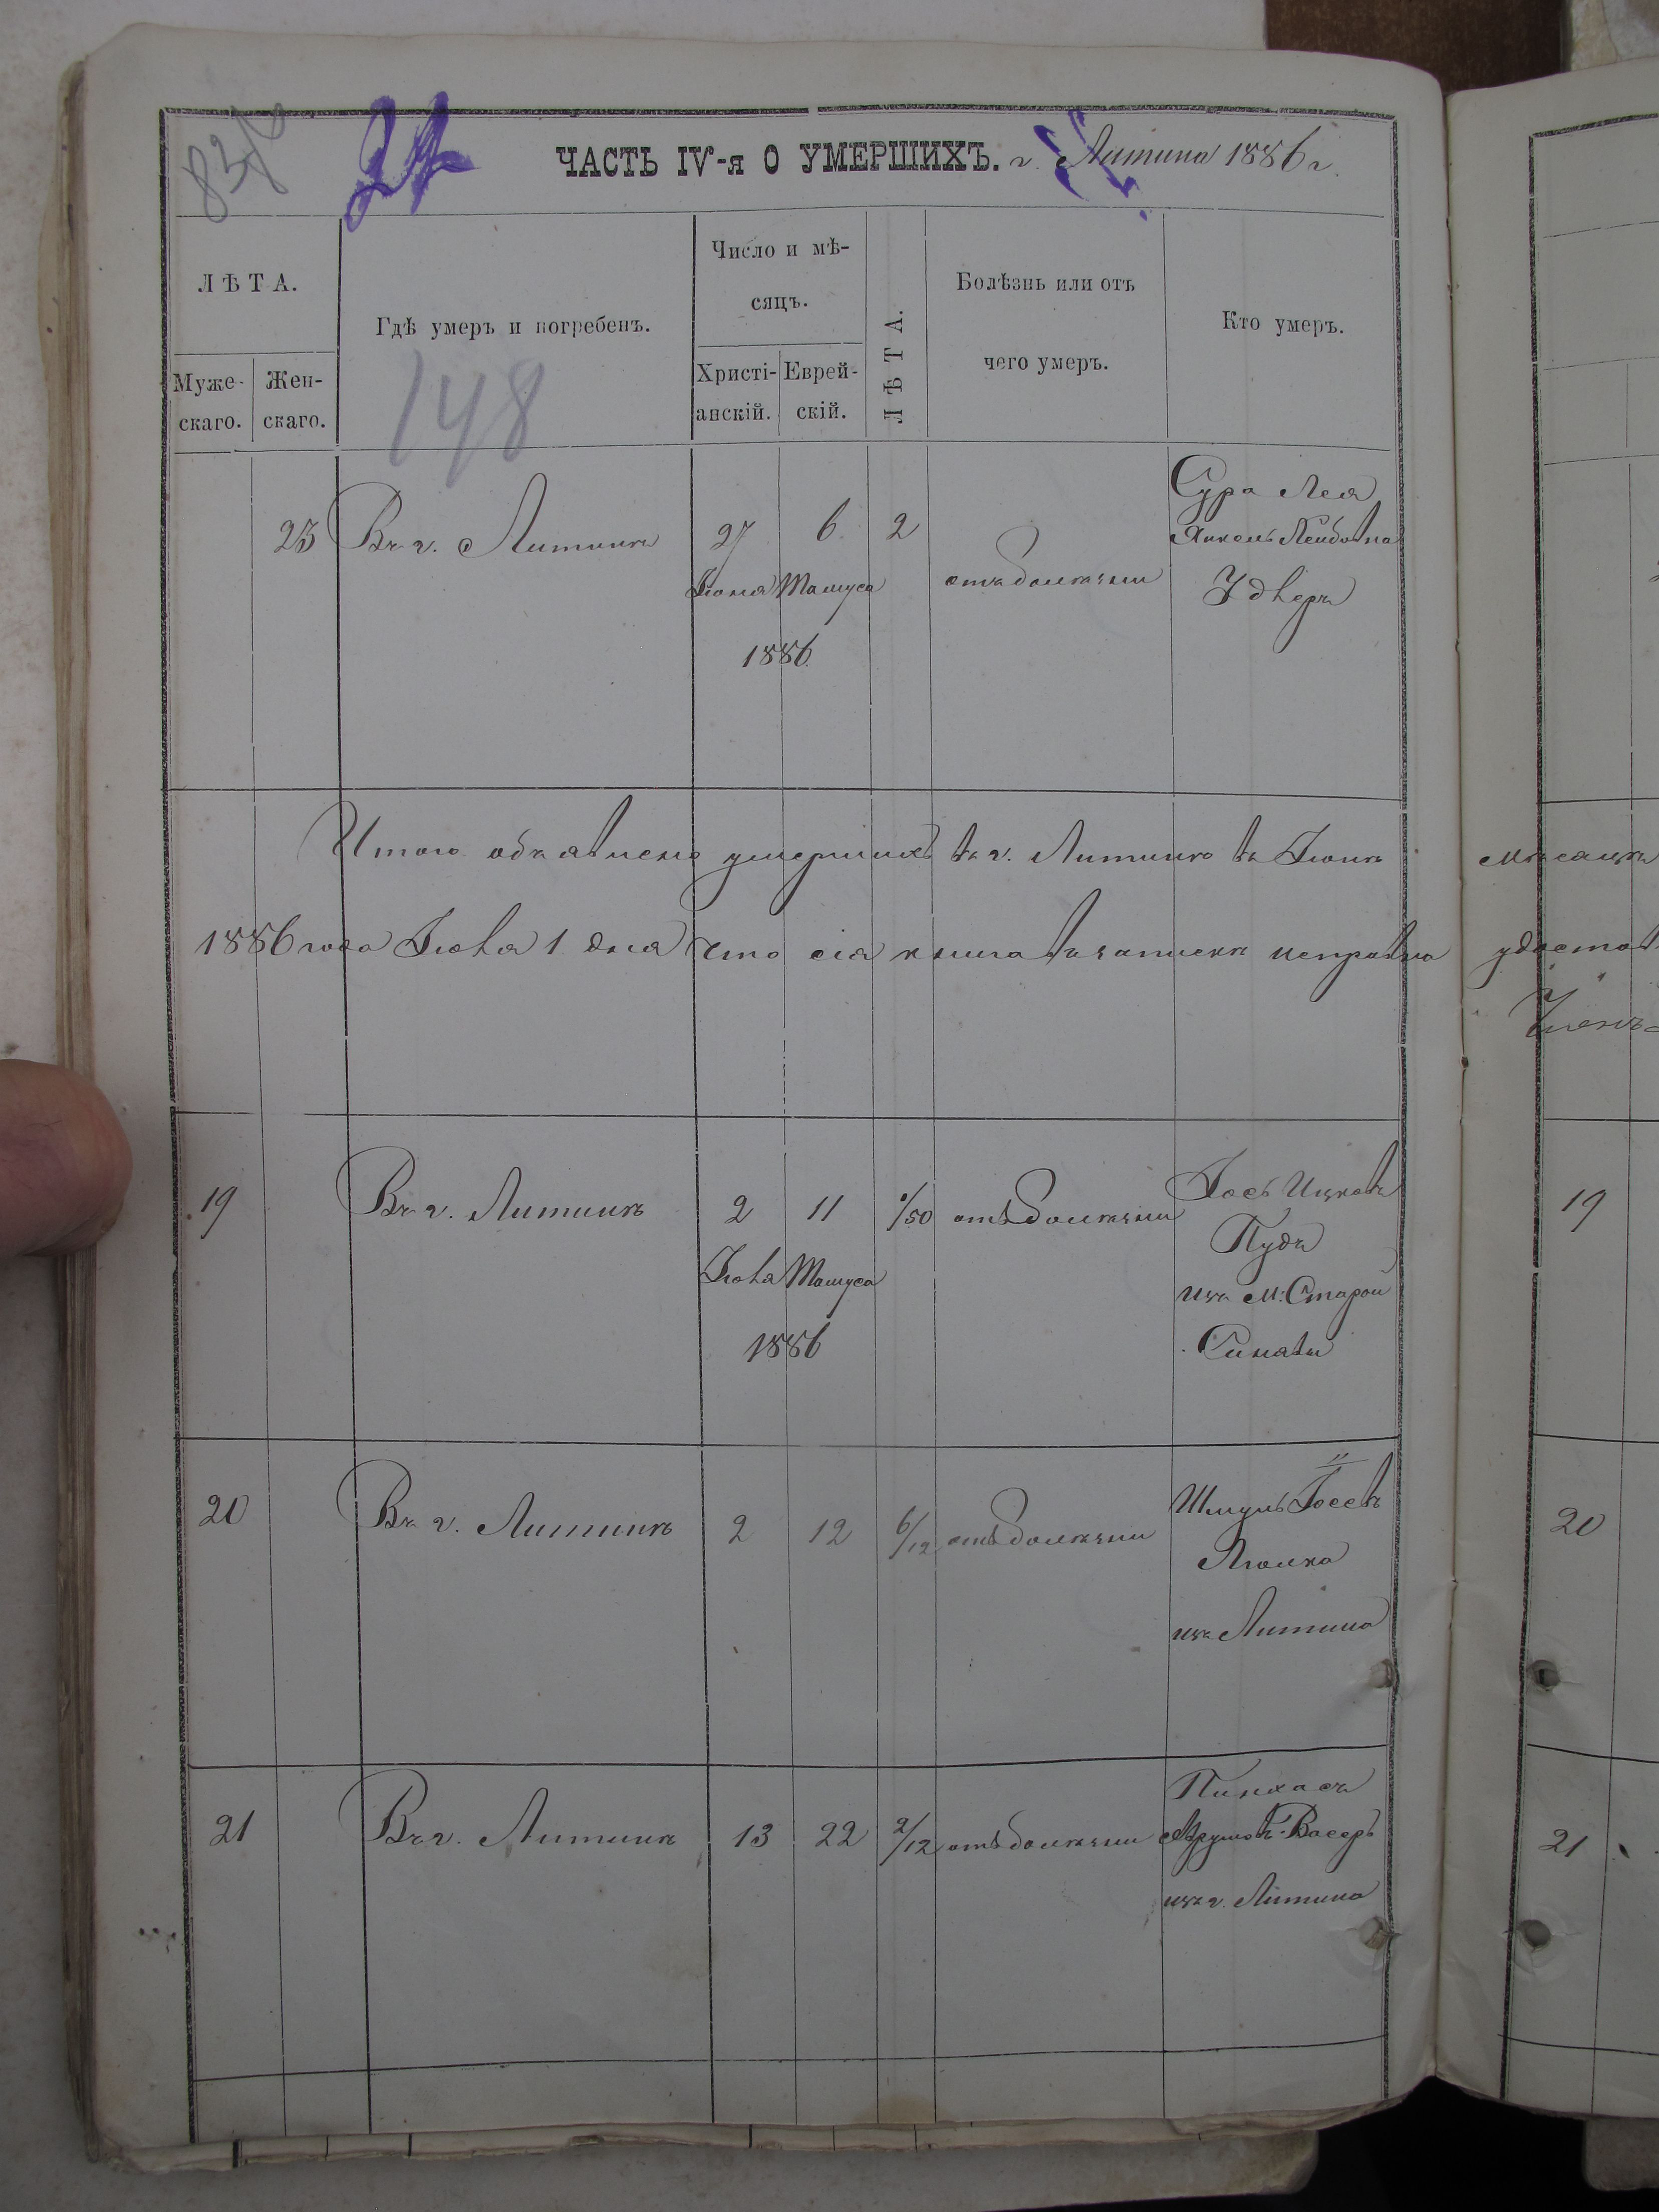 ЧАСТЬ IV-я О УМЕРШИХЪ. г. Литина 1886 г.
ЛѢТА.
Муже-
скаго.
Жен-
скаго.
Гдѣ умеръ и погребенъ.
148
Число и мѣ-
сяцъ.
Христі-
анскій.
Еврей-
скій.
ЛѢТА.
Болѣзнь или отъ
чего умеръ.
Кто умеръ.
23 Въ г. Литинѣ 27 6 2
Іюня Тамуса
1886
отъ болѣзни
Сура Лея
Янкель Лейбовна
Удверъ
Итого объявлено умершихъ въ г. Литинѣ въ Іюнѣ мѣсяцѣ
1886 года Іюля 1 дня что сія книга въ запискѣ исправна
Членъ
19 Въ г. Литинѣ 2 11 /50 отъ болѣзни
Іюля Тамуса
1886
Іось Ицковъ
Пудъ
изъ м. Старой
Синявы
19
20 Въ г. Литинѣ 2 12 6/12 отъ болѣзни
Шмуль Іосевъ
изъ Литина
20
21 Въ г. Литинѣ 13 22 2/12 отъ болѣзни
Пинхасъ
Васеръ
изъ г. Литина
21